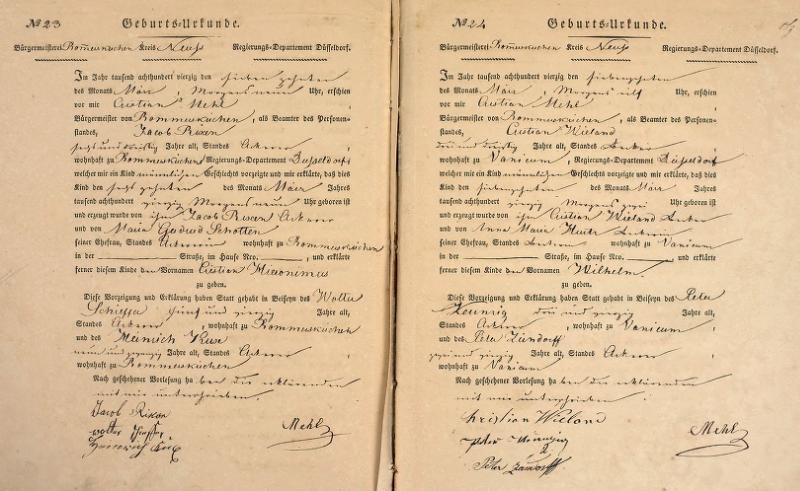 No 23
Geburts-Urkunde.
Bürgermeisterei Rommerskirchen Kreis Neuss Regierungs-Departement Düsseldorf.
Im Jahr tausend achthundert vierzig den sieben zehnten
des Monats März, Morgens neun Uhr, erschien
vor mir Cristian Mehl
Bürgermeister von Rommerskirchen, als Beamter des Personen-
standes, Jacob
sechs und dreißig Jahre alt, Standes Ackerer
wohnhaft zu Rommerskirchen Regierungs-Departement Düsseldorf
welcher mir ein Kind männlichen Geschlechts vorzeigte und mir erklärte, daß dies
Kind den sechs zehnten des Monats März Jahres
tausend achthundert vierzig Morgens neun Uhr geboren ist
und erzeugt wurde von ihm Jacob Ackerer
und von Maria Schotten
seiner Ehefrau, Standes Ackerin wohnhaft zu Rommerskirchen
in der Straße, im Hause Nro. , und erklärte
ferner diesem Kinde den Vornamen Cristian
zu geben.
Diese Vorzeigung und Erklärung haben Statt gehabt in Beiseyn des
fünf und vierzig Jahre alt,
Standes Ackerer, wohnhaft zu Rommerskirchen
und des Heinrich
neun und Jahre alt, Standes Ackerer
wohnhaft zu Rommerskirchen
Nach geschehener Vorlesung haben die erklärenden
mit mir unterschrieben.
Jacob
Heinrich
Mehl
No 24
Geburts-Urkunde.
Bürgermeisterei Rommerskirchen Kreis Neuss Regierungs-Departement Düsseldorf.
Im Jahr tausend achthundert vierzig den siebenzehnten
des Monats März, Morgens eilf Uhr, erschien
vor mir Cristian Mehl
Bürgermeister von Rommerskirchen, als Beamter des Personen-
standes, Cristian Wieland
drei und dreißig Jahre alt, Standes
wohnhaft zu Vanicum, Regierungs-Departement Düsseldorf
welcher mir ein Kind männlichen Geschlechts vorzeigte und mir erklärte, daß dies
Kind den siebenzehnten des Monats März Jahres
tausend achthundert vierzig Morgens Uhr geboren ist
und erzeugt wurde von ihm Cristian Wieland
und von Anna Maria
seiner Ehefrau, Standes wohnhaft zu Vanicum
in der Straße, im Hause Nro. , und erklärte
ferner diesem Kinde den Vornamen Wilhelm
zu geben.
Diese Vorzeigung und Erklärung haben Statt gehabt in Beiseyn des Peter
drei und vierzig Jahre alt,
Standes Ackerer, wohnhaft zu Vanicum
und des Peter Zündorff
zwei und vierzig Jahre alt, Standes Ackerer
wohnhaft zu Vanicum
Nach geschehener Vorlesung haben die erklärenden
mit mir unterschrieben.
Christian Wieland
Peter
Peter Zündorff
Mehl